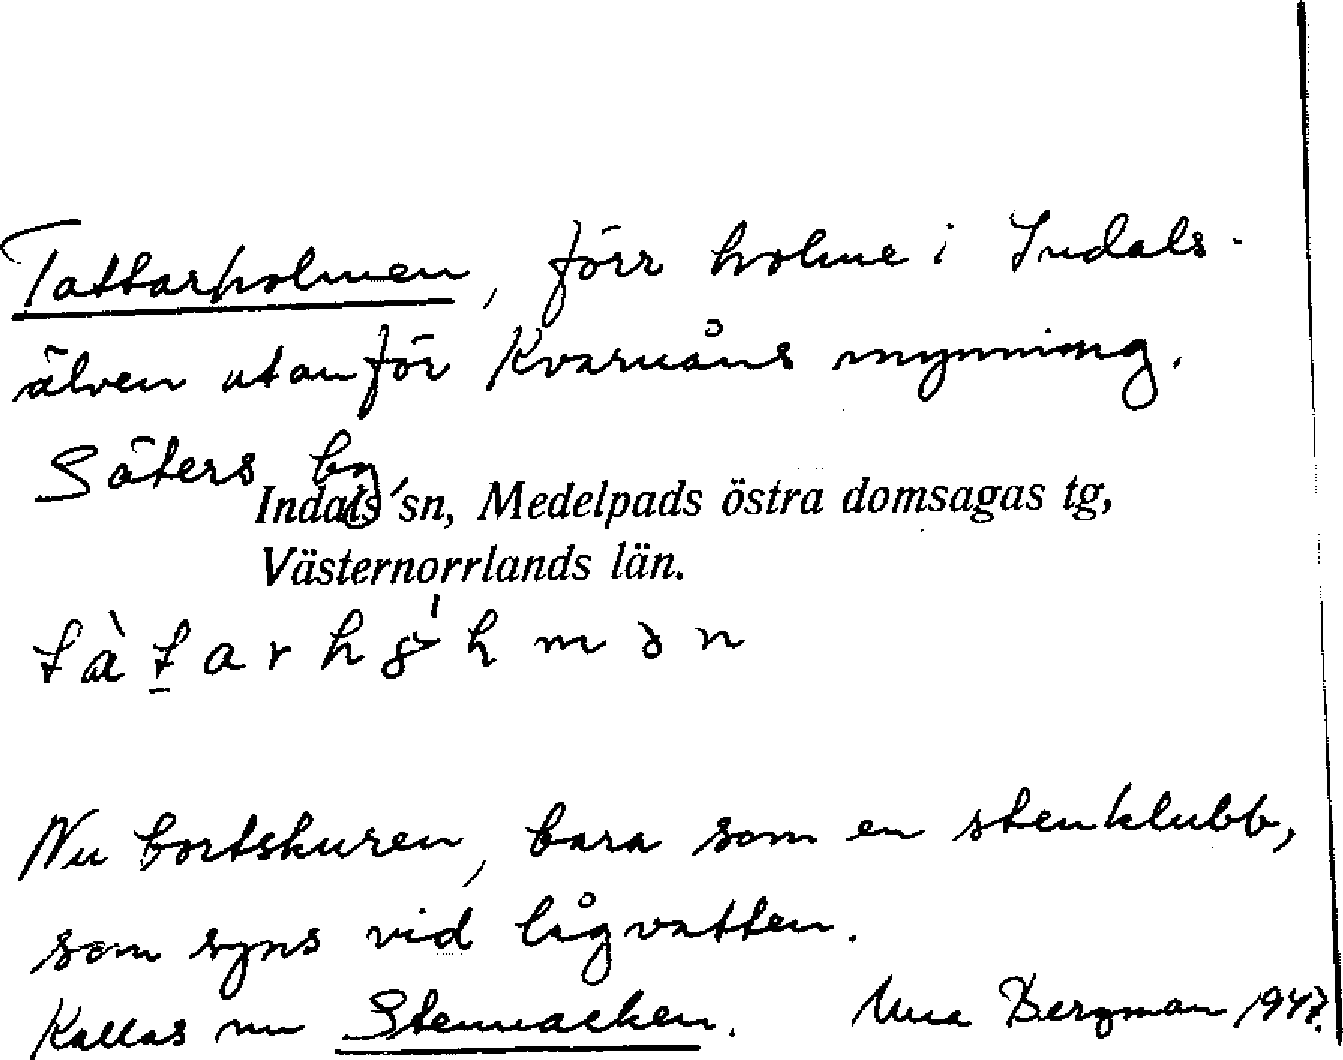 Tattarholmen, förr holme i Indals-
älven utanför Kvarnåns mynning.
Säters by
Indals sn, Medelpads östra domsagas tg,
Västernorrlands län.
Nu bortskuren, bara som en stenklubb,
som syns vid lågvatten.
Kallas nu Stennacken. Una Bergman